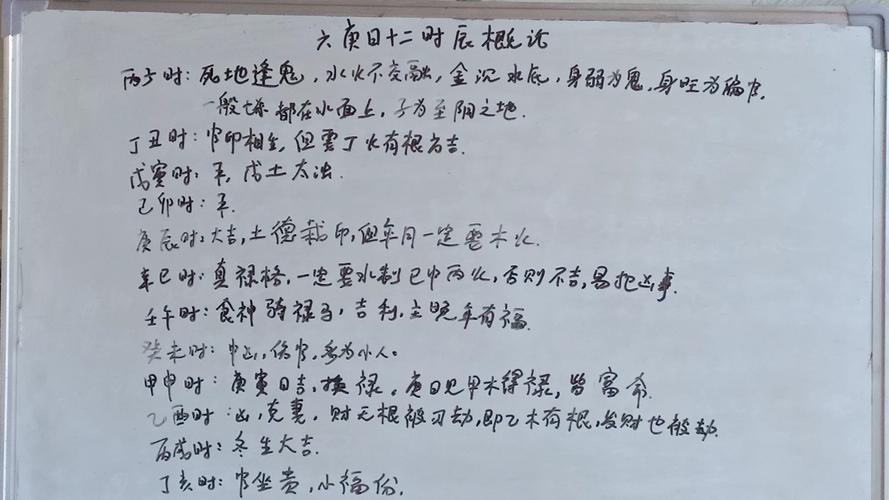 六庚日十二时辰概论
丙子时：死地逢鬼，水火不交融，金沉水底，身弱为鬼，身旺为偏官，
一般 都在水面上，子为至阴之地.
丁丑时：官印相生，但要丁火有根为吉.
戊寅时：平，戊土太浊.
己卯时：平.
庚辰时：大吉，土德载印，但年月一定要木火.
辛巳时：真禄格，一定要水制巳中丙火，否则不吉，易犯凶事.
壬午时：食神骑禄马，吉利，主晚年有福.
癸未时：中凶，伤官，多为小人。
甲申时：庚寅日吉，换禄。庚日见甲木得禄，皆富命
乙酉时：凶，克妻，财无根被刃劫，即乙木有根，发财也被劫.
丙戌时：冬生大吉.
丁亥时：官坐贵，小福份.